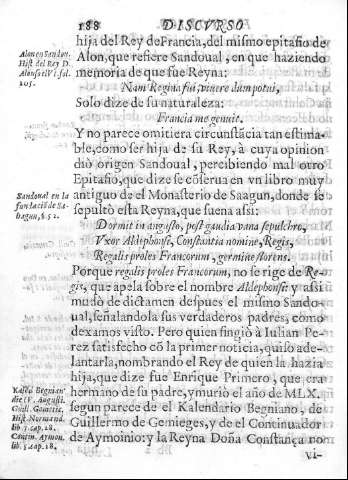 188 DISCVRSO
hija del Rey deFrancia,del mismo epitafio de
Alon,que refiere Sandoual, en que haziendo
memoria de que fue Reyna:
Nam Regina fui, viuere dum potui,
Solo dize de su naturaleza:
Francia me genuit.
Y no parece omitiera circunstãcia tan estima-
ble, como ser hija de su Rey, à cuya opinion
diò origen Sandoual, percibiendo mal otro
Epitafio, que dize se cõserua en vn libro muy
antiguo de el Monasterio de Saagun, donde se
sepultò esta Reyna, que suena assi:
Dormit in angusto, post gaudia vana sepulchro,
Vxor Aldephonsi, Constantia nomine, Regis,
Regalis proles Francorum, germine florens.
Porque regalis proles Francorum, no se rige de Re-
gis, que apela sobre el nombre Aldephonsi: y assi
mudò de dictamen despues el mismo Sando-
ual, señalandola sus verdaderos padres, como
dexamos visto. Pero quien fingiò à Iulian Pe-
rez satisfecho cõ la primer noticia, quiso ade-
lantarla, nombrando el Rey de quien la hazia
hija, que dize fue Enrique Primero, que era
hermano de su padre, y muriò el año de MLX.
segun parece de el Kalendario Begniano, de
Guillermo de Gemieges, y de el Continuador
de Aymoinio: y la Reyna Doña Constança no
vi-
Alon en Sandou.
Hist. del Rey D.
Alonso el VI. fol.
105.
Sandoual en la
fundaciõ de Sa-
hagun, §. 52.
Kalẽd. Begnian'
die IV. Augusti.
Guil. Gemetic.
Hist. Normand.
lib. 7. cap. 28.
Contin. Aymon.
lib. 5. cap. 28.